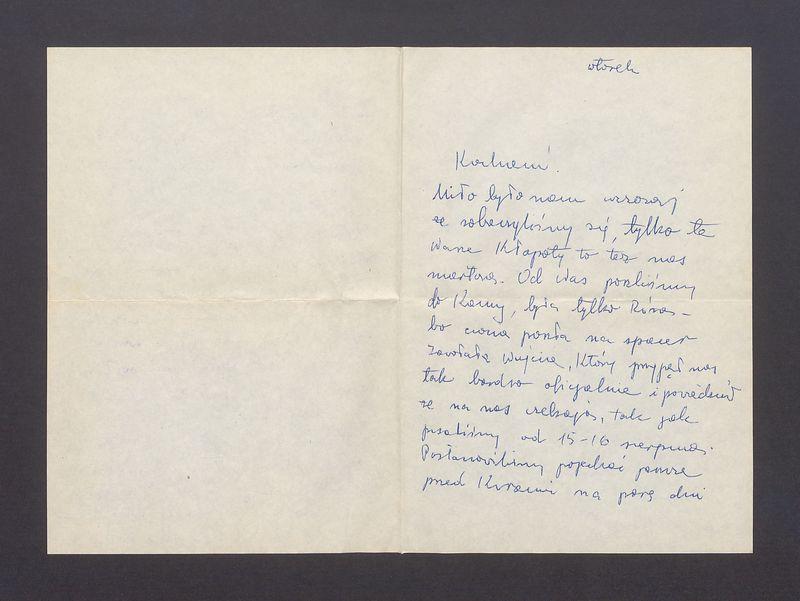 wtorek
Kochani!
Miło było nam wczoraj
że zobaczyliśmy się, tylko te
Wasze kłopoty to też nas
martwią. Od Was poszliśmy
do Kamy, była tylko
bo ciocia poszła na spacer
zawołała wujcia, który przyjął nas
tak bardzo oficjalnie i powiedział
że na nas czekają, tak jak
pisaliśmy od 15-16 sierpnia.
Postanowiliśmy pojechać jeszcze
przed na parę dni